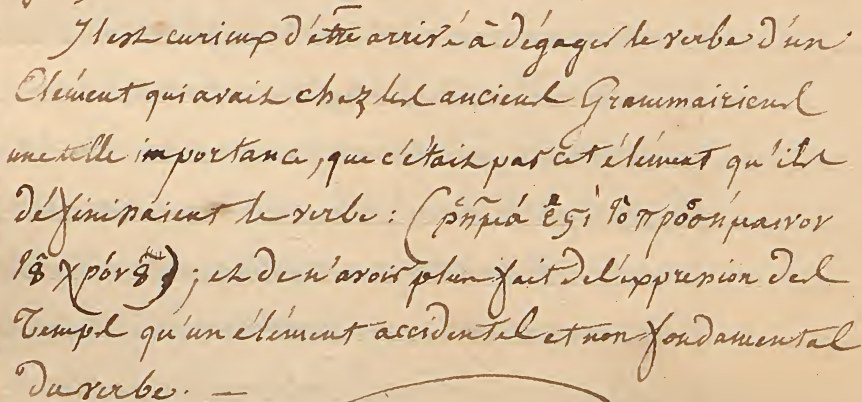 Il est curieux d'être arrivé à dégager le verbe d'un
Elément qui avait chez les anciens Grammairiens
une telle importance, que c'était par cet élément qu'ils
définissaient le verbe : (ῥῆμά ἐστι τὸ προσήμαινον
τοῦ χρόνου) ; et de n'avoir plus fait de l'expression des
Temps qu'un élément accidentel et non fondamental
du verbe. —